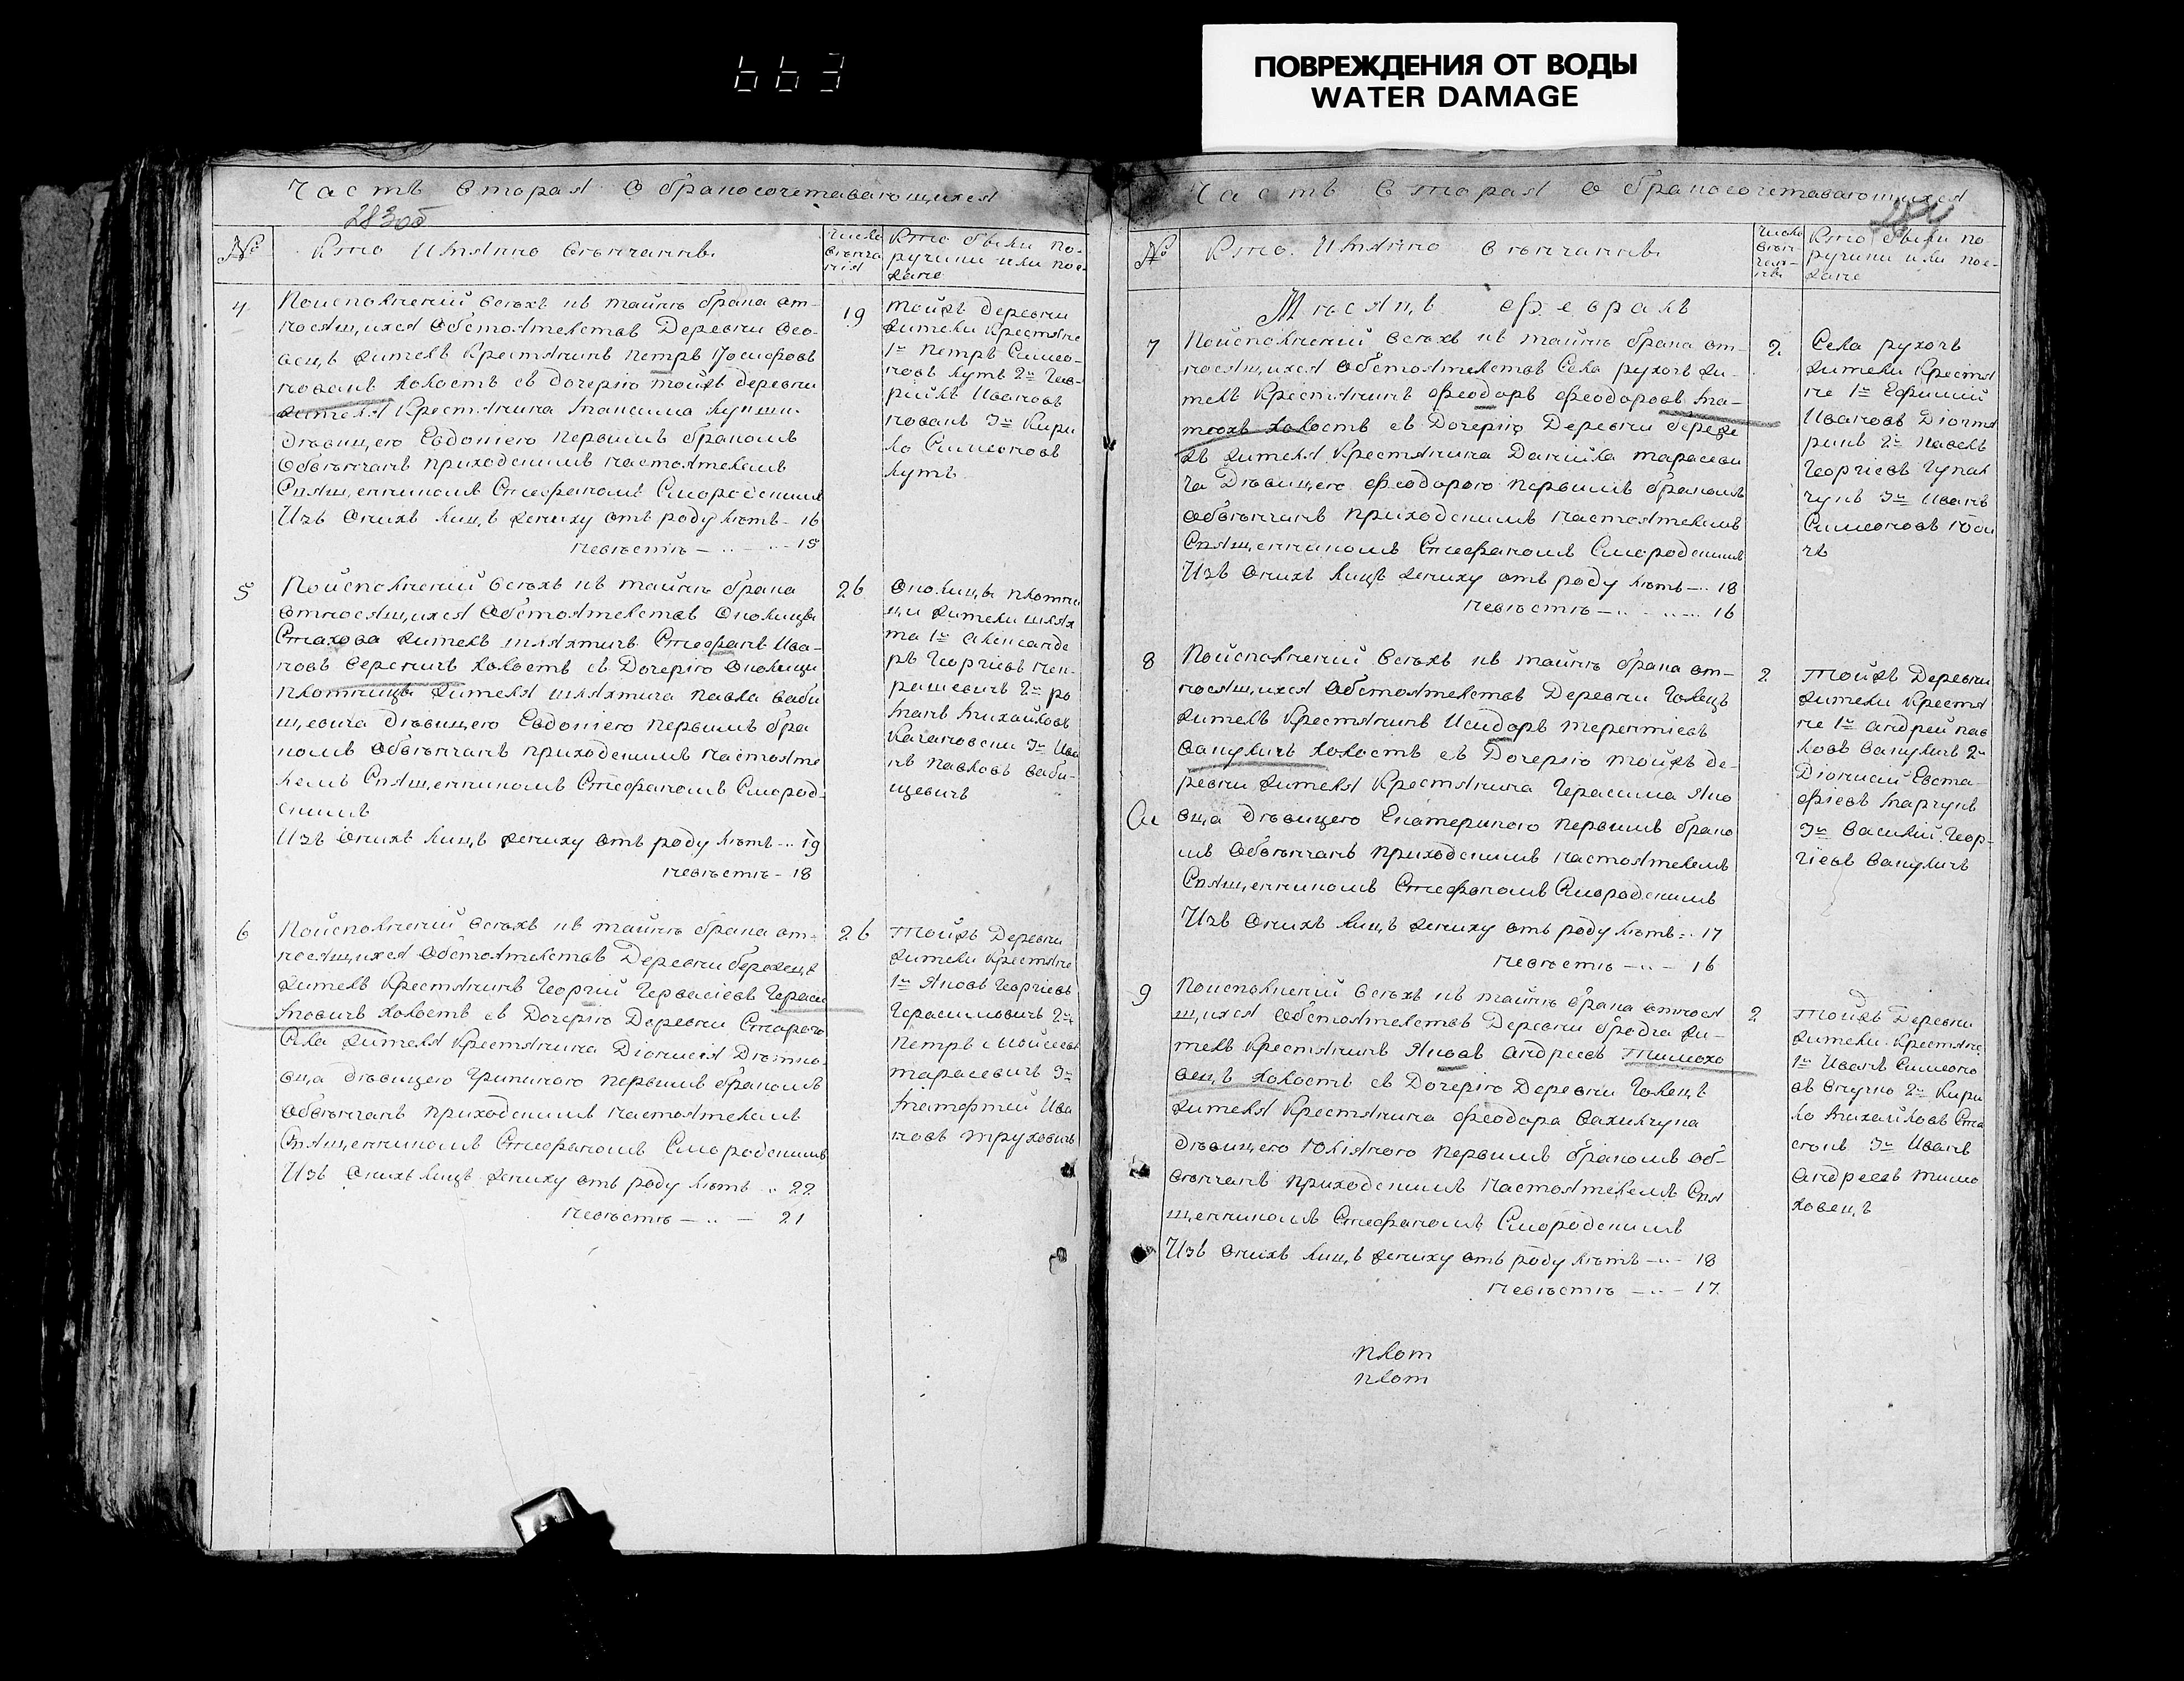 663
ПОВРЕЖДЕНИЯ ОТ ВОДЫ
WATER DAMAGE
Часть вторая о бракосочетавающихся
283об
№
Кто имянно венчаннъ
число венча нія
Кто были по-
ручики или поез-
жане
4
По исполнении всехъ къ таинъ брака от-
носящихся обстоятельствъ Деревни
житель Крестянинъ Петръ Иосифовъ
холостъ съ Дочерью тойжъ деревни
жителя Крестянина Максима
Девицею Евдокіею первымъ бракомъ
обвенчанъ приходскимъ настоятелемъ
Священникомъ Стефаномъ Смородскимъ
Изъ оныхъ лицъ жениху отъ роду летъ 16
невесте 15
19
тойжъ деревни
жители Крестяне
1й Петръ Симео-
новъ Кутъ 2й Гео-
ргій Ивановъ
3й Кири
ло Симеоновъ
Кутъ
5
По исполнении всехъ къ таинъ брака
относящихся обстоятельствъ Околицы
Стахова житель шляхтичъ Стефанъ Ива-
новъ Серечичъ холостъ съ Дочерью околицы
Плотницы жителя шляхтича Павла Баби
щевича Девицею Евдокіею первымъ бра
комъ обвенчанъ приходскимъ настояте
лемъ Священникомъ Стефаномъ Смород-
скимъ
Изъ оныхъ лицъ жениху отъ роду летъ 19
невесте 18
26
Околицы Плотни
цы жители шлях
та 1й Александе
ръ Георгіевъ
2й Ро
манъ Михайловъ
Качановски 3й Ива
нъ Павловъ Баби-
щевичъ
6
По исполнении всехъ къ таинъ брака от-
носящихся обстоятельствъ Деревни Бережцъ
житель Крестянинъ Георгій Гервасіевъ Гераси
мовичъ холостъ съ Дочерью Деревни Старого
Села жителя Крестянина Діонисія Дятло-
вца девицею Грипиною первымъ бракомъ
обвенчанъ приходскимъ настоятелемъ
Священникомъ Стефаномъ Смородскимъ
Изъ оныхъ лицъ жениху отъ роду летъ 22
невесте 21
26
тойжъ Деревни
жители Крестяне
1й Яковъ Георгіевъ
Герасимовичъ 2й
Петръ Моисеевъ
Тарасевичъ 3й
Матфтей Ива
новъ Труховичъ
Часть вторая о бракосочетавающихся
№
Кто имянно венчаннъ
число венчан-нъ
Кто были по
ручики или поез-
жане
Месяцъ февраль
7
По исполнении всехъ къ таинъ брака от-
носящихся обстоятельствъ Села Рухчъ жи-
тель Крестянинъ Феодоръ Феодоровъ
холостъ съ Дочерью Деревни Береже
цъ жителя Крестянина Данийла Тарасеви
ча Девицею Феодорою первымъ бракомъ
обвенчанъ приходскимъ настоятелемъ
Священникомъ Стефаномъ Смородскимъ
Изъ оныхъ лицъ жениху отъ роду летъ 18
невесте 16
2
Села Рухчъ
жители Крестя
не 1й Ефимий
Ивановъ
2й Павелъ
Георгіевъ
3й Иванъ
Симеоновъ
8
По исполнении всехъ къ таинъ брака от-
носящихся обстоятельствъ Деревни Голецъ
житель Крестянинъ Исидоръ Терентіевъ
Вакуличъ холостъ съ Дочерью тойжъ де-
ревни жителя Крестянина Герасима Яко
вца Девицею Екатериною первымъ брако
мъ обвенчанъ приходскимъ настоятелемъ
Священникомъ Стефаномъ Смородскимъ
Изъ оныхъ лицъ жениху отъ роду летъ 17
невесте 16
2
тойжъ Деревни
жители Крестя
не 1й Андрей Пав
ловъ Вакуличъ 2й
Діонисій Евста-
фіевъ Марчукъ
3й Василий Геор-
гіевъ Вакуличъ
9
По исполнении всехъ къ таинъ брака относя
щихся обстоятельствъ Деревни Бродча жи-
тель Крестянинъ Яковъ Андреевъ Тимохо
вецъ холостъ съ Дочерью Деревни Голецъ
жителя Крестянина Феодора Вахильчука
девицею Юліяною первымъ бракомъ об-
венчанъ приходскимъ настоятелемъ Свя
щенникомъ Стефаномъ Смородскимъ
Изъ оныхъ лицъ жениху отъ роду летъ 18
невесте 17
2
тойжъ Деревни
жители Крестяне
1й Иванъ Симеоно
въ 2й Кири
ло Михайловъ
3й Иванъ
Андреевъ Тимо
ховецъ
плот
плот